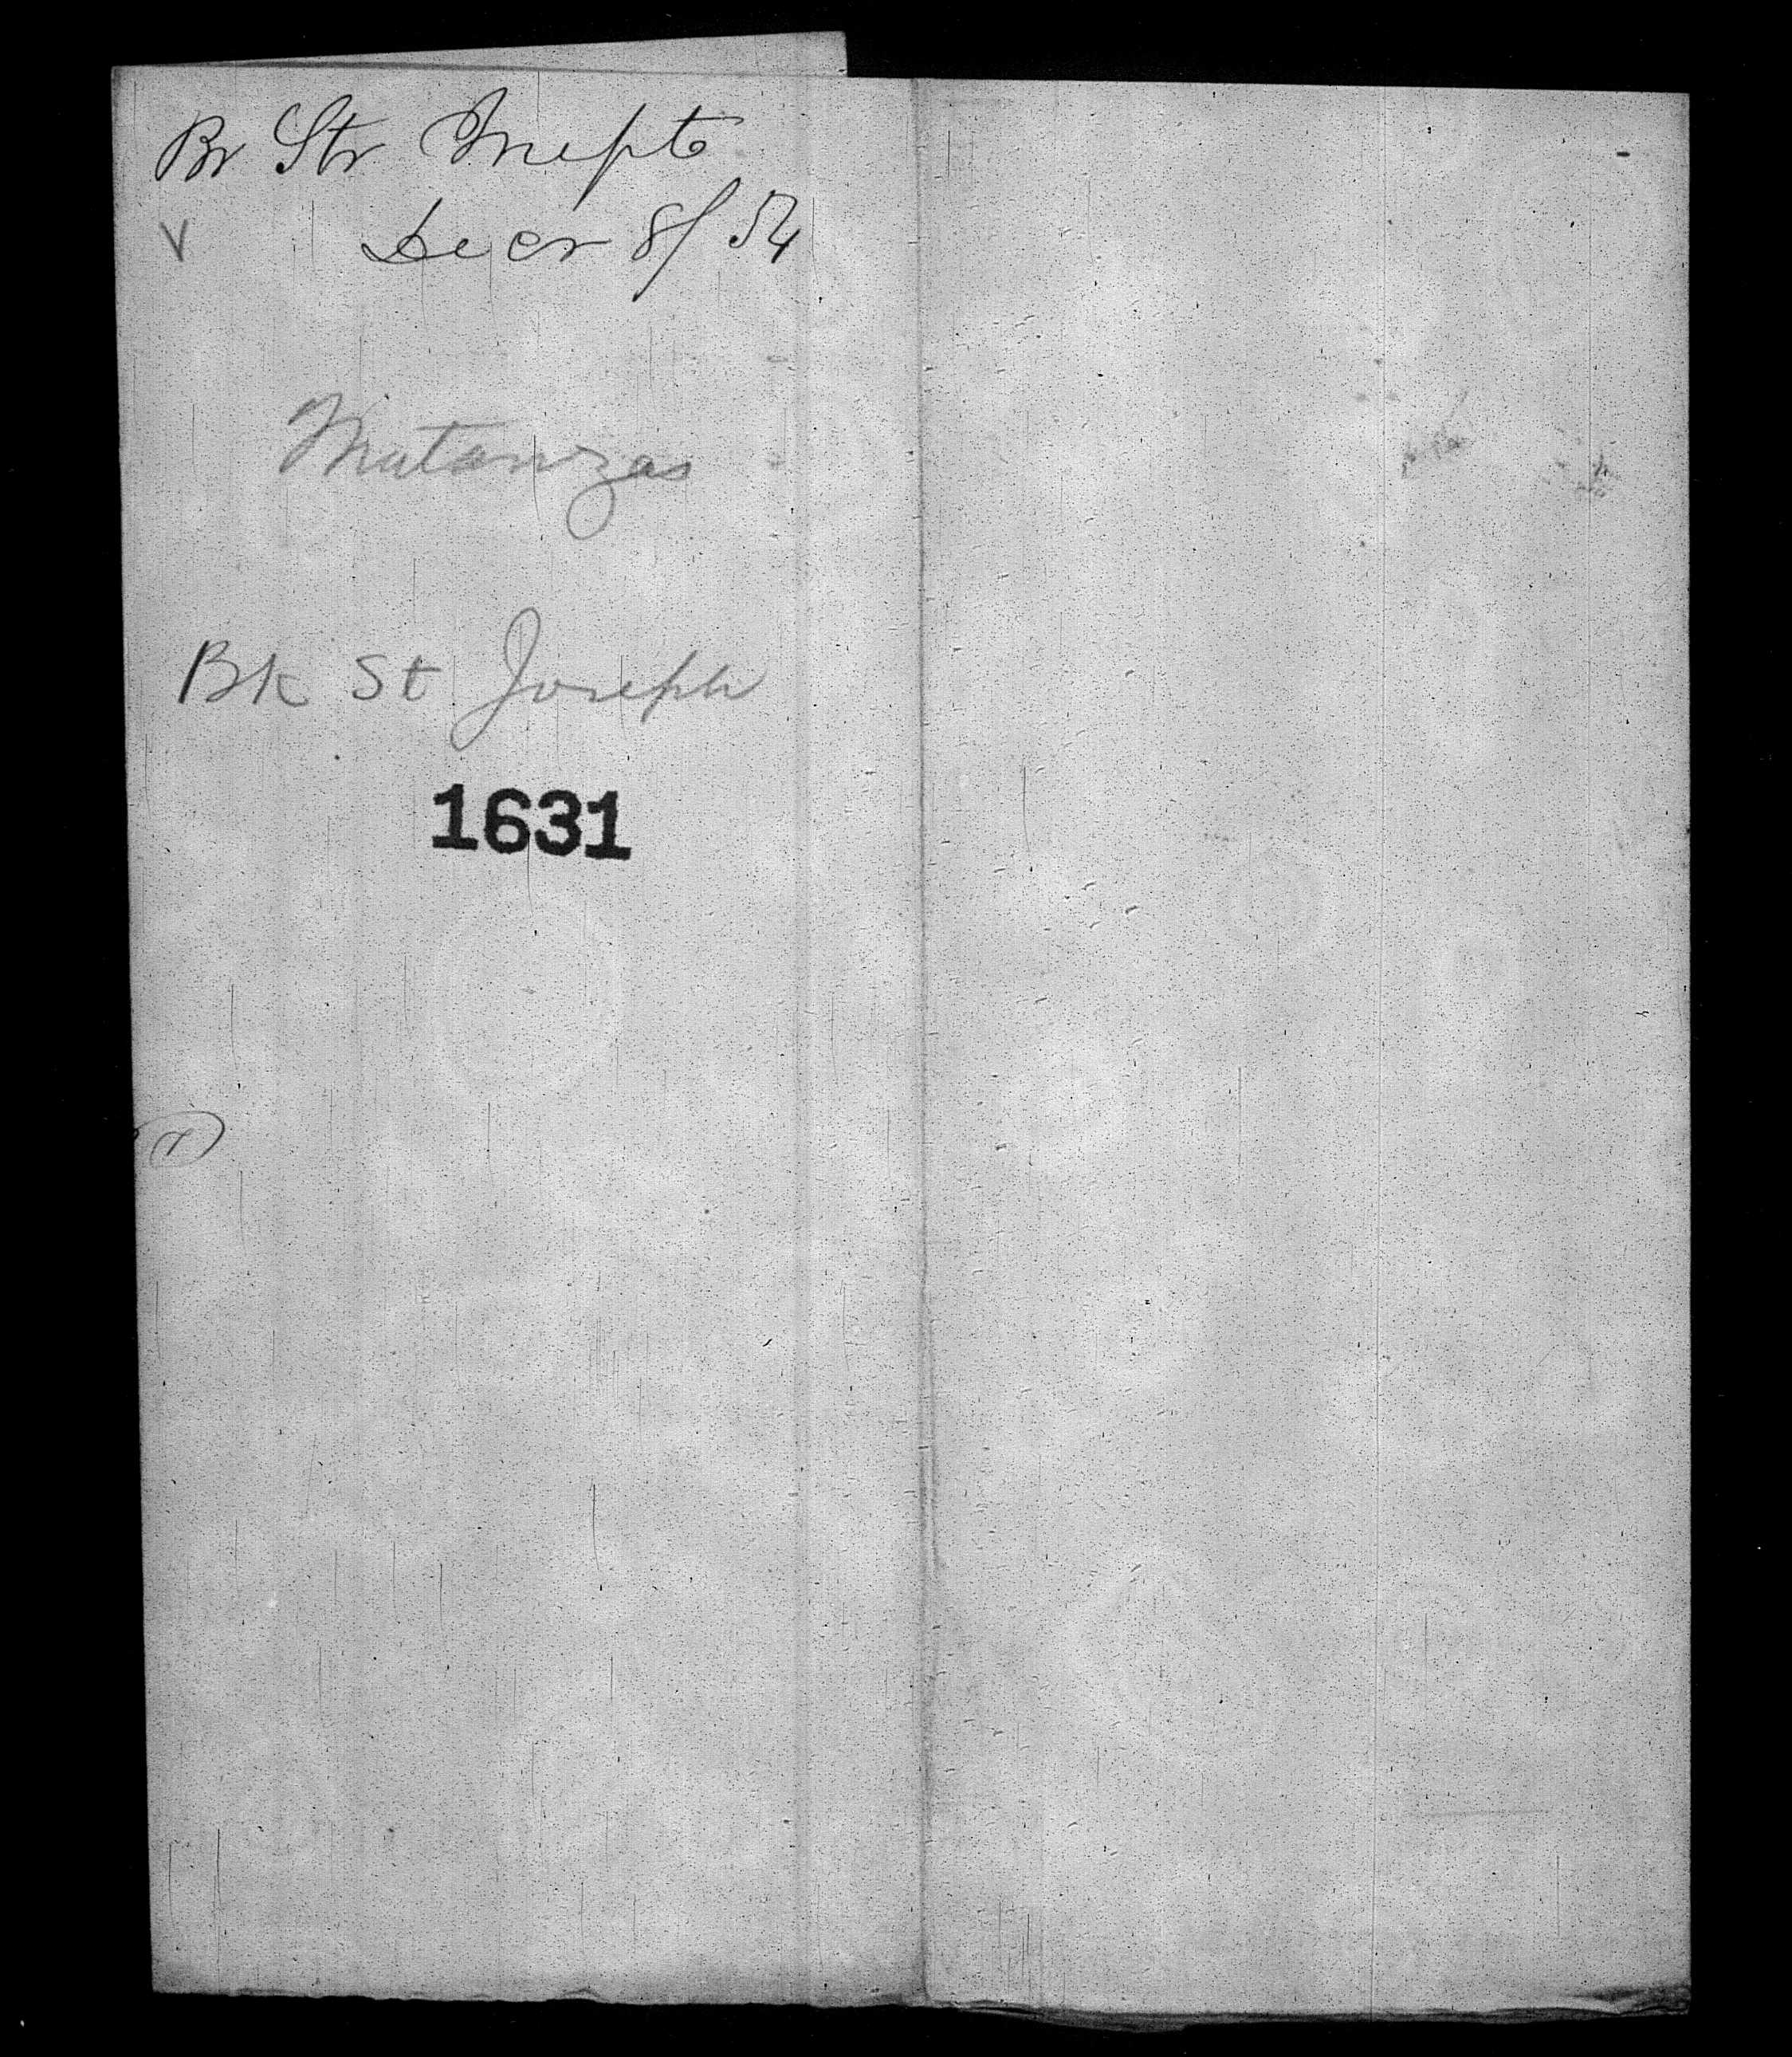 Br Str Mnifsto
V Decr 8/54
Matanzas
Bk St Joseph
1631